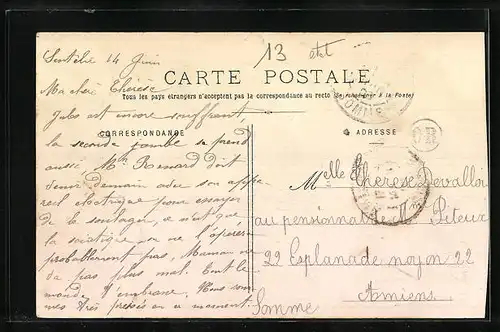 13
14 Juin
Ma chère Thérèse
CARTE POSTALE
Tous les pays étrangers n'acceptent pas la correspondance au recto (Se renseigner à la Poste)
CORRESPONDANCE
ADRESSE
est encore souffrant,
la seconde jambe se prend
aussi, Mr Renard doit
venir demain avec son appa-
reil électrique pour essayer
de le soulager, si n'est que
la sciatique on ne l'opérera
probablement pas, Maman ne
va pas plus mal. Tout le
monde t'embrasse. Nous som-
mes très pressés en ce moment.
Melle Thérèse Devallois
au pensionnat Piteux
22 Esplanade noyon 22
Amiens
Somme
SOMME
OR